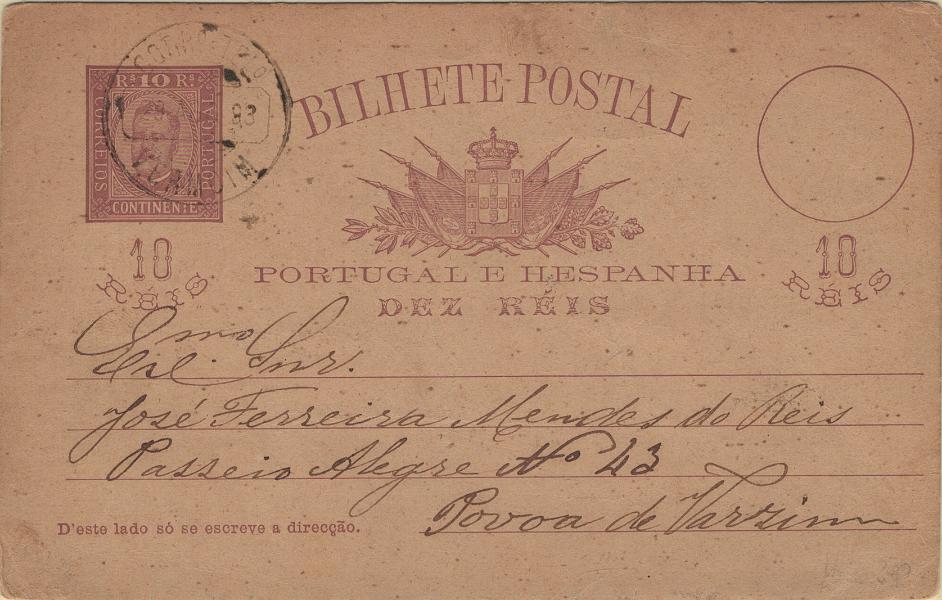 Rs 10 Rs
CORREIOS
PORTUGAL
CONTINENTE
93
BILHETE POSTAL
10
RÉIS
10
RÉIS
PORTUGAL E HESPANHA
DEZ RÉIS
Exmo Snr.
José Ferreira Mendes do Reis
Passeio Alegre No 43
Povoa de Varzim
D'este lado só se escreve a direcção.